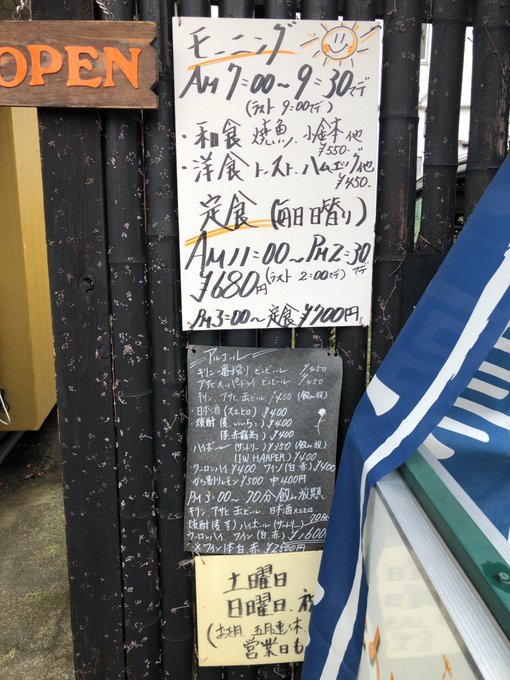 OPEN
モーニング
AM 7:00〜9:30マデ
(ラスト 9:00マデ)
・和食 焼魚、小鉢 他
¥550-
・洋食 トースト、ハムエッグ他
¥450-
定食 (毎日日替り)
AM11:00〜PM2:30マデ
¥680円 (ラスト 2:00マデ)
PM3:00〜定食¥700円
アルコール
キリン一番搾り ビンビール ¥450
アサヒスーパードライ ビンビール ¥450
キリン、アサヒ 缶ビール ¥400 (飲み放)
日本酒 (スエヒロ) ¥400
・焼酎 (麦 いいち) ¥400
¥400
ハイボール (サントリー) ¥350 (飲み放)
(I.W HARPER) ¥400
ウーロンハイ ¥400 ワイン (白 赤) ¥400
¥500 中400円
PM3:00〜 70分飲み放題
キリン、アサヒ 缶ビール、日本酒スエヒロ
焼酎 (麦 芋) ハイボール (サントリー)
ウーロンハイ ワイン (白 赤) ¥1600
ワイン1本 白 赤 ¥2500円
土曜日
日曜日、祝
(お正月、五月連休
営業日も